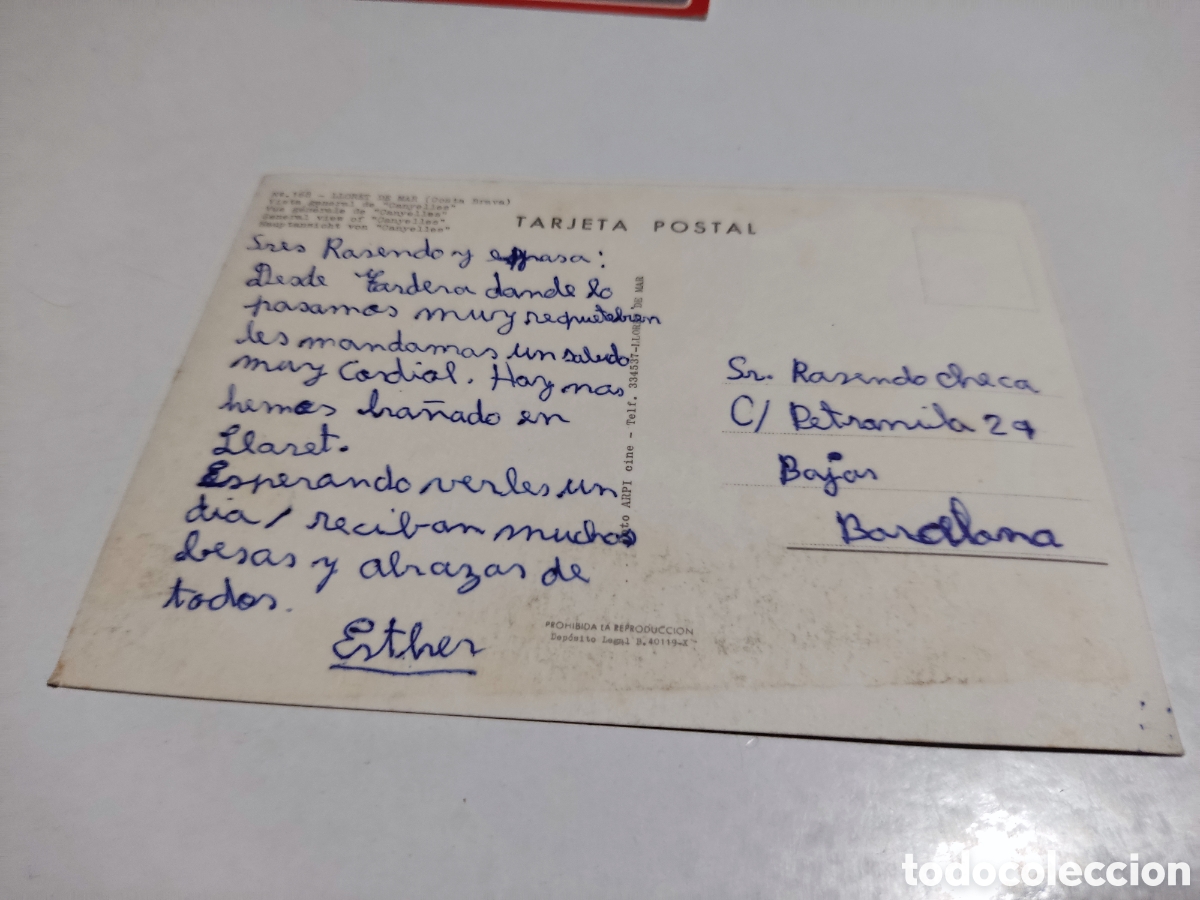 LLORET DE MAR (Costa Brava)
Vista general de "Canyelles"
Vue générale de "Canyelles"
General view of "Canyelles"
Hauptansicht von "Canyelles"
TARJETA POSTAL
Sres Rosendo y esposa:
Desde Tordera donde lo
pasamos muy requetebien
les mandamos un saludo
muy Cordial. Hoy nos
hemos bañado en
Lloret.
Esperando verles un
dia, reciban muchos
besos y abrazos de
todos.
Esther
Foto ARPI cine - Telf. 334537-LLORET DE MAR
Sr. Rosendo Checa
C/ Petronila 29
Bajos
Barcelona
PROHIBIDA LA REPRODUCCION
Depósito Legal B.40119-X
todocoleccion.net